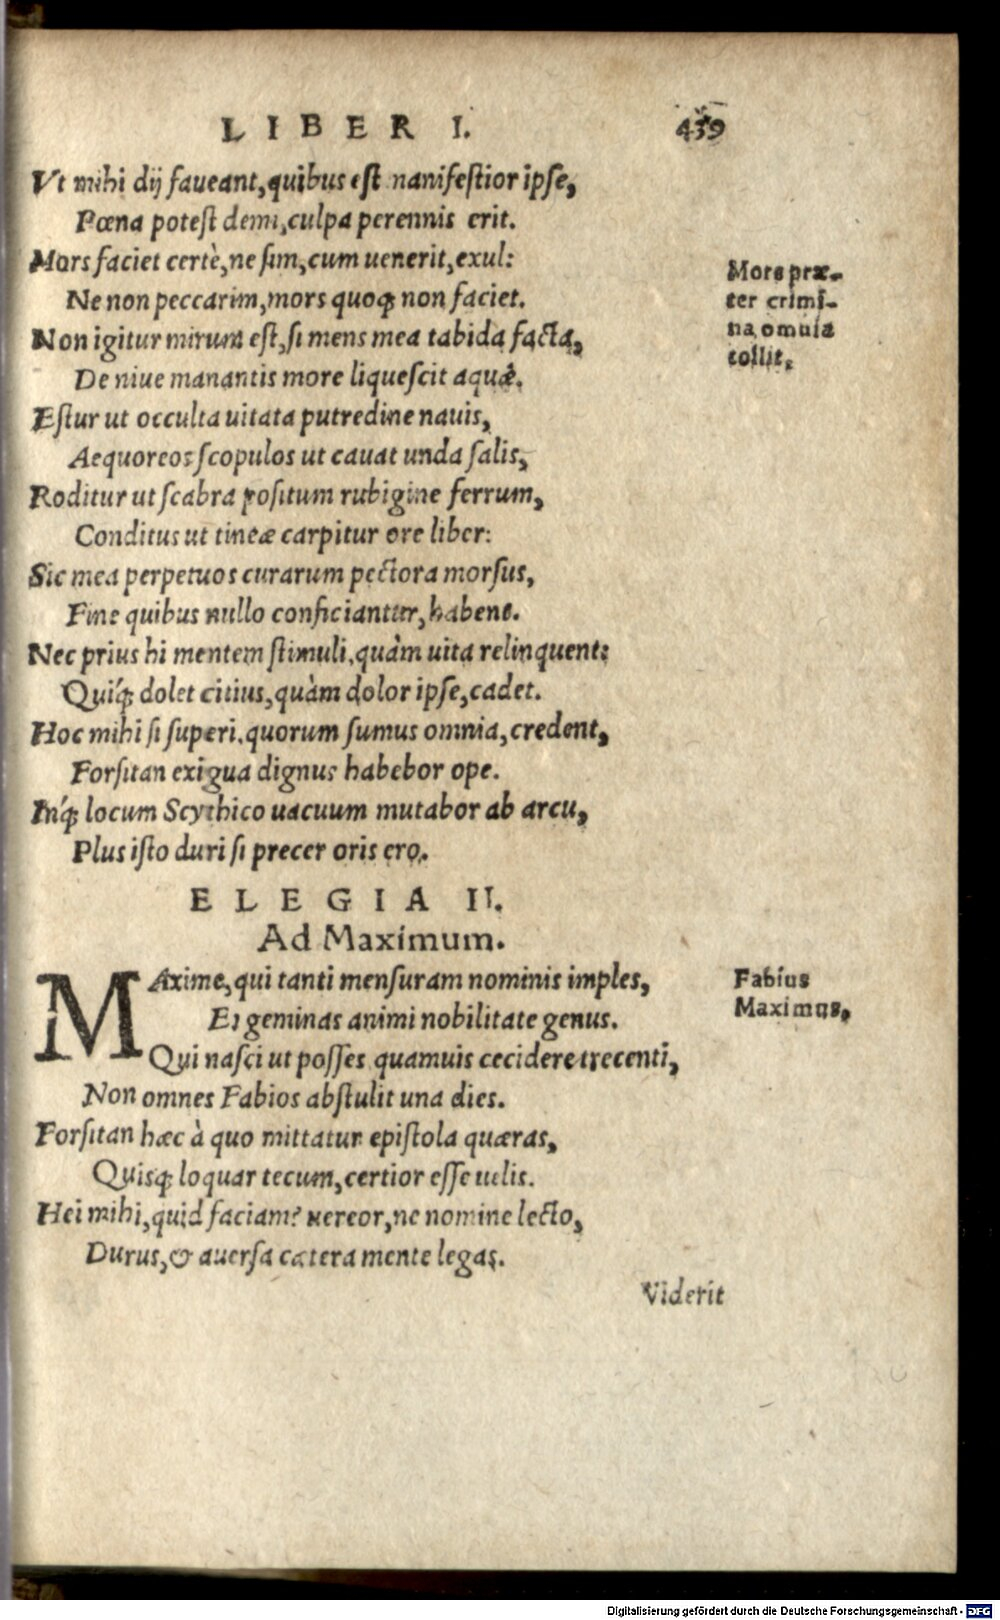 LIBER I. 439
Vt mihi dij faueant, quibus est manifestior ipse,
Pœna potest demi, culpa perennis erit.
Mors faciet certè, ne sim, cum uenerit, exul:
Ne non peccarim, mors quoq; non faciet.
Mors præ-
ter crimi-
na omnia
tollit.
Non igitur mirum est, si mens mea tabida facta,
De niue manantis more liquescit aquæ.
Estur ut occulta uitata putredine nauis,
Aequoreos scopulos ut cauat unda salis,
Roditur ut scabra positum rubigine ferrum,
Conditus ut tineæ carpitur ore liber:
Sic mea perpetuos curarum pectora morsus,
Fine quibus nullo conficiantur, habent.
Nec prius hi mentem stimuli, quàm uita relinquent:
Quíq; dolet citius, quàm dolor ipse, cadet.
Hoc mihi si superi, quorum sumus omnia, credent,
Forsitan exigua dignus habebor ope.
Inq́; locum Scythico uacuum mutabor ab arcu,
Plus isto duri si precer oris ero.
ELEGIA II.
Ad Maximum.
MAxime, qui tanti mensuram nominis imples,
Et geminas animi nobilitate genus.
Fabius
Maximus.
Qui nasci ut posses quamuis cecidere trecenti,
Non omnes Fabios abstulit una dies.
Forsitan hæc à quo mittatur epistola quæras,
Quisq; loquar tecum, certior esse uelis.
Hei mihi, quid faciam? uereor, ne nomine lecto,
Durus, & auersa cætera mente legas.
Viderit
Digitalisierung gefördert durch die Deutsche Forschungsgemeinschaft - DFG